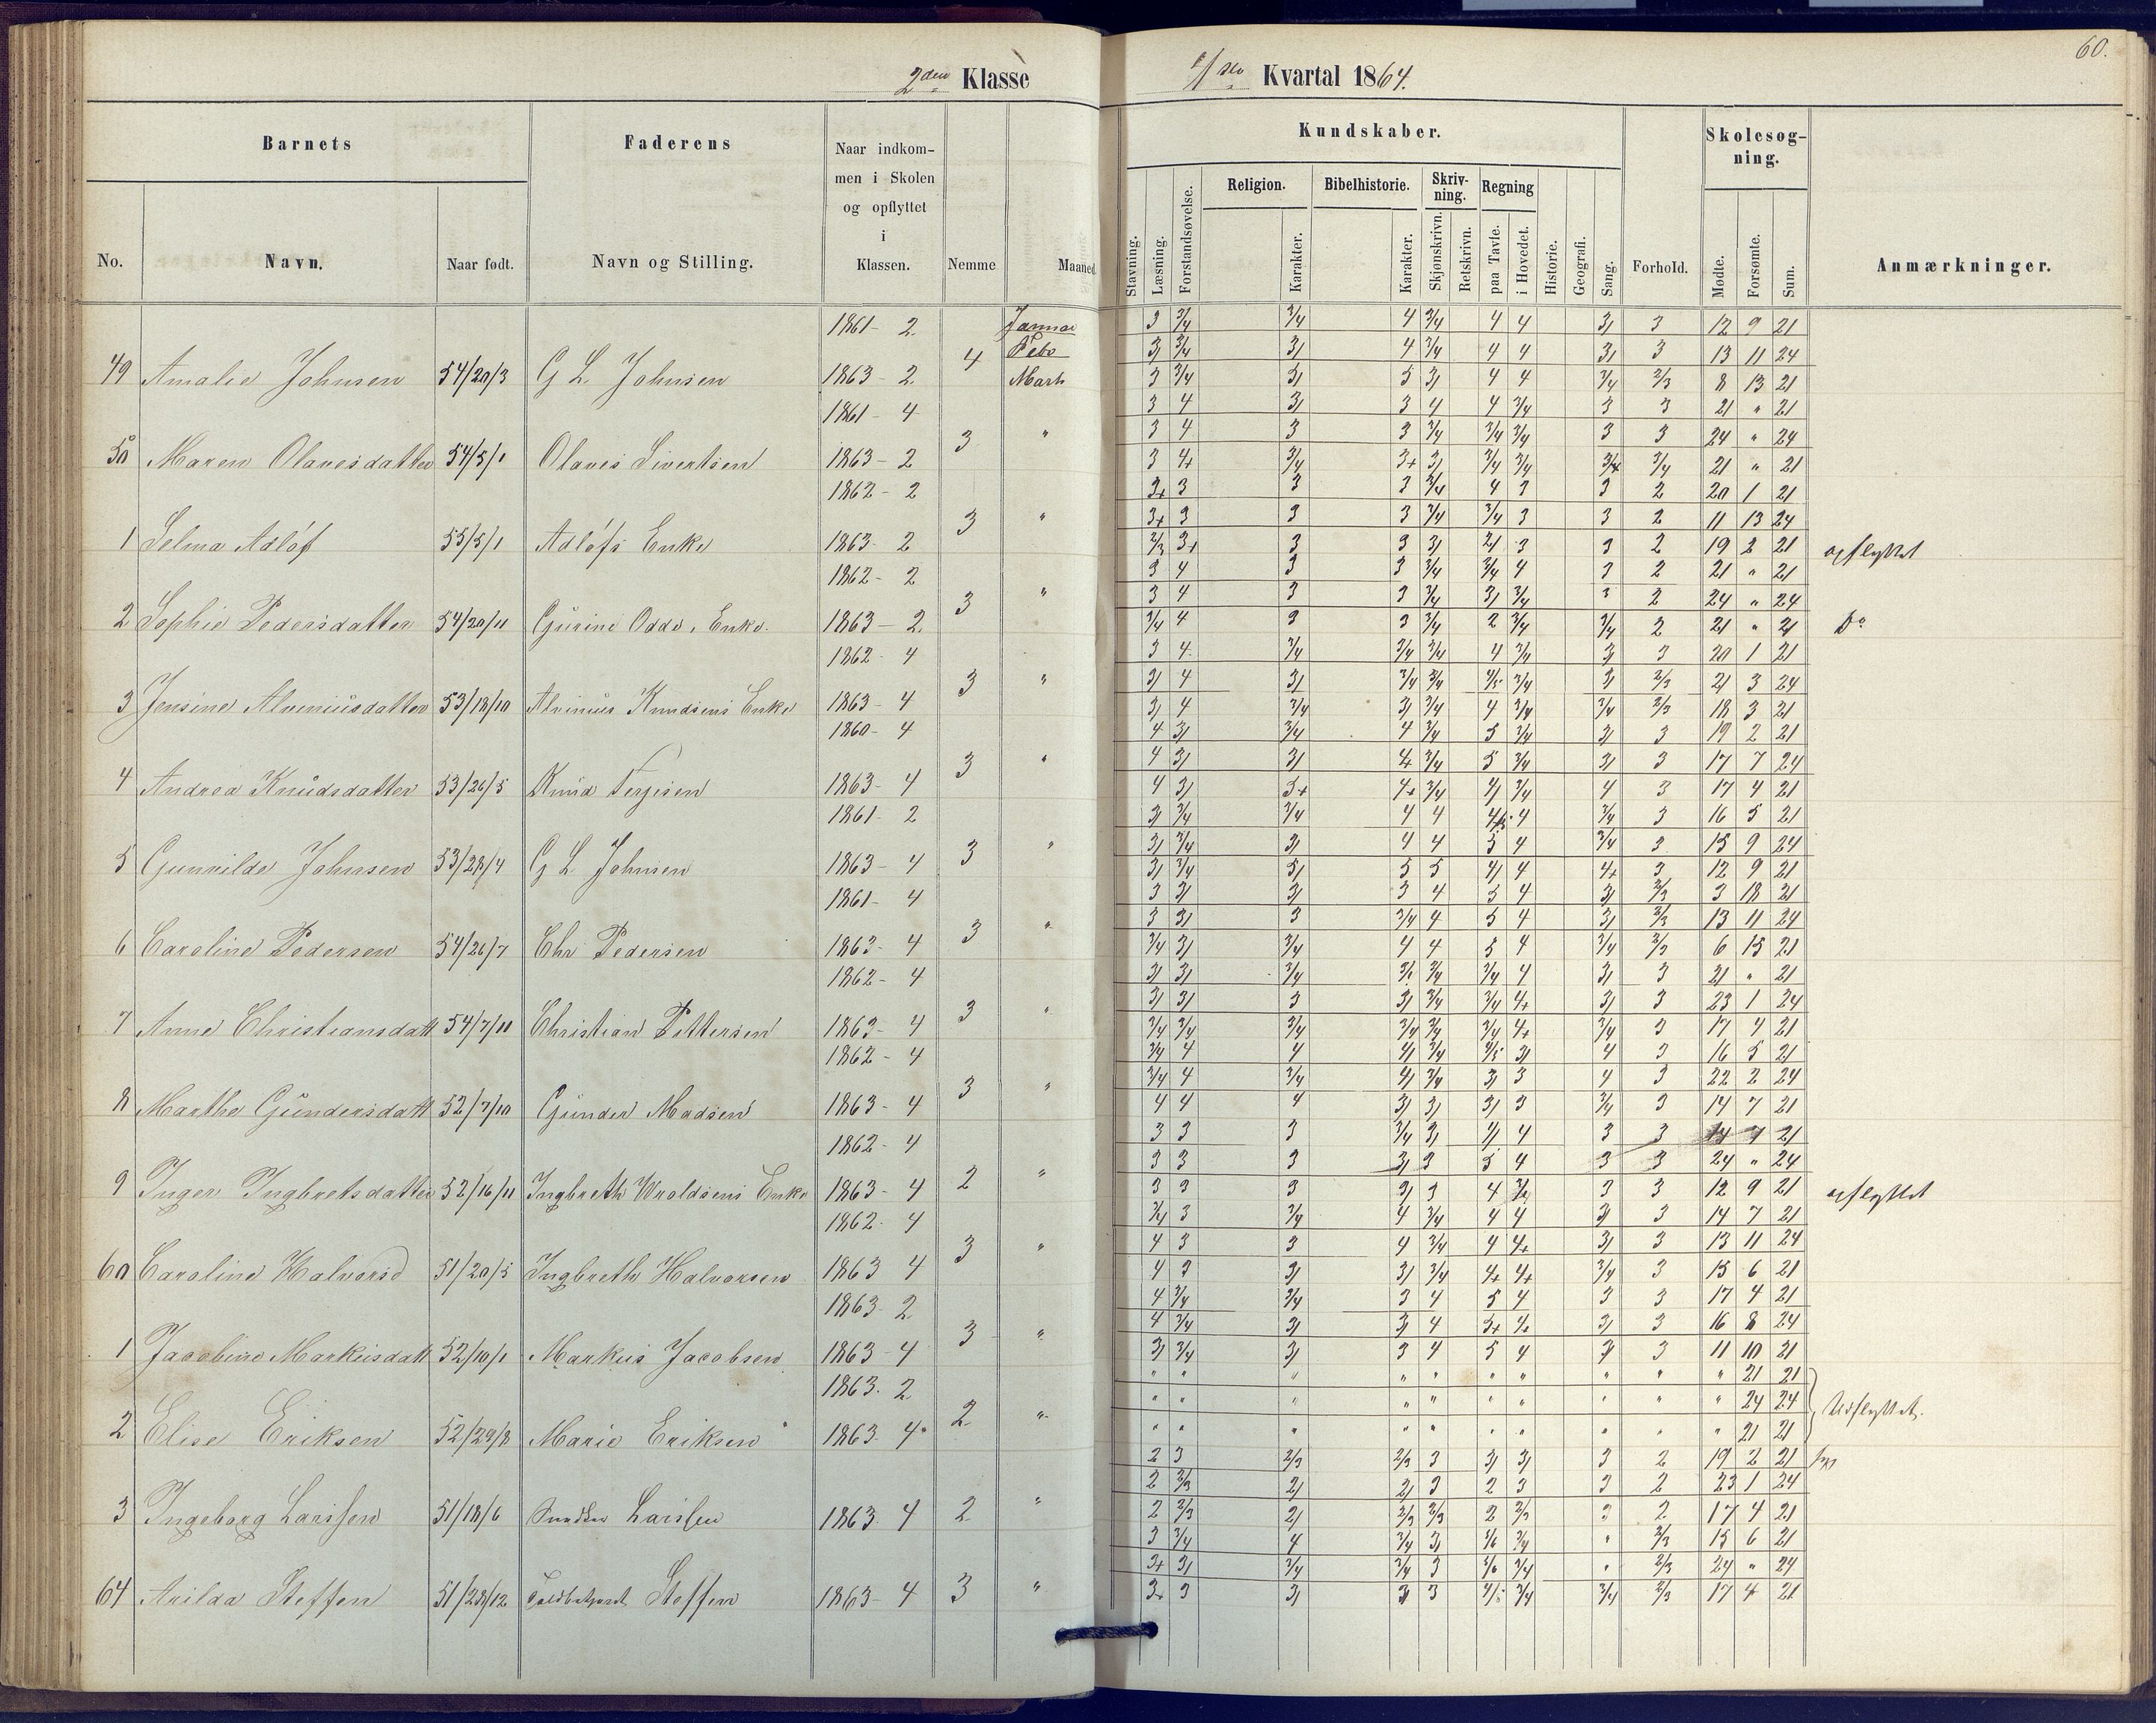 60.
2den Klasse
1ste Kvartal 1864.
Barnets Faderens Naar indkom-
men i Skolen
og opflyttet
i
Klassen.
No. Navn. Naar født. Navn og Stilling. Nemme Maaned
Kundskaber.
Stavning. Læsning. Forstandsøvelse. Religion. Karakter. Bibelhistorie. Karakter. Skriv-
ning. Skjønskrivn. Retskrivn. Regning paa Tavle. i Hovedet. Historie. Geografi. Sang. Forhold.
Skolesøg-
ning.
Mødte. Forsømte. Sum. Anmærkninger.
1861 - 2 Januar 3 3/4 3/4 4 3/4 4 4 3 12 9 21
4 Feb 3/4 4 3/4 4 4 3 13 11 24
49 Amalie Johnsen 54/20/3 G L Johnsen 1863 - 2 Marts 3 3/4 4 4 3/4 2/3 8 13 21
1861 - 4 3 4 3 4 3/4 3 3 21 " 21
3 " 3 4 3 3 3/4 3/4 3/4 3 3 24 " 24
50 Maren Olavesdatter 54/5/1 Olaves Sivertsen 1863 - 2 3 4+ 3/4 3+ 3/4 3/4 3/4 3/4 21 " 21
1862 - 2 3+ 3 3 3 3/4 4 3 3 2 20 1 21
3 " 3+ 3 3 3 3/4 3/4 3 3 2 11 13 24
1 Selma Adlöf 55/5/1 Adlöfs Enke 1863 - 2 2/3 3+ 3 3 3 3 2 19 2 21 opflyttet
1862 - 2 3 4 3 3 3/4 3/4 4 3 2 21 " 21
3 " 3 4 3 3 3/4 3/4 3 2 24 " 24
2 Sophie Pedersdatter 54/20/11 Gurine Odds. Enke. 1863 - 2. 3/4 4 3 3 3/4 2 3/4 3/4 2 21 " 21 Do
1862 - 4 3 4 3/4 3/4 3/4 4 3/4 3 20 1 21
3 " 4 3/4 3/4 3/4 2/3 21 3 24
3 Jensine Alveniusdatter 53/18/10 Alvinius Knudsens Enke 1863 - 4 4 3/4 3/4 4 3/4 3/4 2/3 18 3 21
1860 - 4 4 3/4 4 3/4 5 3/4 3 19 2 21
3 " 4 4+ 3/4 5 3/4 3 17 7 24
4 Andrea Knudsdatter 53/26/5 Knud Terjesen 1863 - 4 4 3+ 4+ 3/4 3/4 4 3 17 4 21
1861 - 2 3/4 3/4 4 4 4 3/4 3 16 5 21
3 " 3/4 4 4 5 4 3/4 3 15 9 24
5 Gunnilde Johnsen 53/28/4 G L Johnsen 1863 - 4 3/4 5 5 4 4+ 3 12 9 21
1861 - 4 3 3 4 5 4 2/3 3 18 21
3 " 3 3 3/4 4 5 4 2/3 13 11 24
6 Caroline Pedersen 54/26/7 Chr Pedersen 1863 - 4 3/4 3/4 4 4 5 4 3/4 2/3 6 15 21
1862 - 4 3/4 3/4 3/4 4 3 21 " 21
3 " 3 3/4 3/4 4+ 3 23 1 24
7 Anne Christiansdatt 54/7/11 Christian Pettersen 1863 - 4 3/4 3/4 3/4 3/4 3/4 3/4 4+ 3/4 3 17 4 21
1862 - 4 3/4 4 4 3/4 4 3 16 5 21
3 " 3/4 4 3/4 3/4 3 4 3 22 2 24
8 Marthe Gundersdatt 52/7/10 Gunder Madsen 1863 - 4 4 4 4 3 3/4 3 14 7 21
1862 - 4 3 3 3 3/4 4 3 3 21
2 " 3 3 3 3 5 4 3 3 24 " 24
9 Inger Ingbretsdatter 52/16/11 Ingbreth Wroldsens Enke 1863 - 4 3 3 3 3 4 3 3 12 9 21 opflyttet
1862 - 4 3/4 3 3/4 4 3/4 4 4 3 14 7 21
3 " 4 3 3 4 3/4 4 4+ 3 13 11 24
60 Caroline Halvorsd 51/20/5 Ingbreth Halvorsen 1863 4 4 3 3/4 4+ 4+ 3/4 3 15 6 21
1863 - 2 4 3/4 3/4 3 4 5 4 3 3 17 4 21
3 " 4 3/4 4 3 16 8 24
1 Jacobine Markusdatt 52/10/1 Markus Jacobsen 1863 - 4 3/4 3 4 5 4 3 11 10 21
1863 - 2 " " " " " " " " " " 21 21
2 " " " " " " " " " " " 24 24 Udflyttet.
2 Elise Eriksen 52/29/8 Marie Eriksen 1863 - 4 " " " " " " " " " " 21 21
2 3 2/3 2/3 3 3 2 19 2 21
2 " 2 2/3 3 2 3 3 2 23 1 24
3 Ingeborg Larssen 51/18/6 Larssen 1863 4 2 2/3 2/3 2/3 2 2/3 2 17 4 21
3 3/4 4 3/4 3/4 " 2/3 15 6 21
3 " 3+ 3/4 3/4 3 3/4 " 2/3 24 " 24
64 Arilda Steffen 51/28/12 Steffen 1863 - 4 3+ 3 3 3/4 3/4 2/3 17 4 21